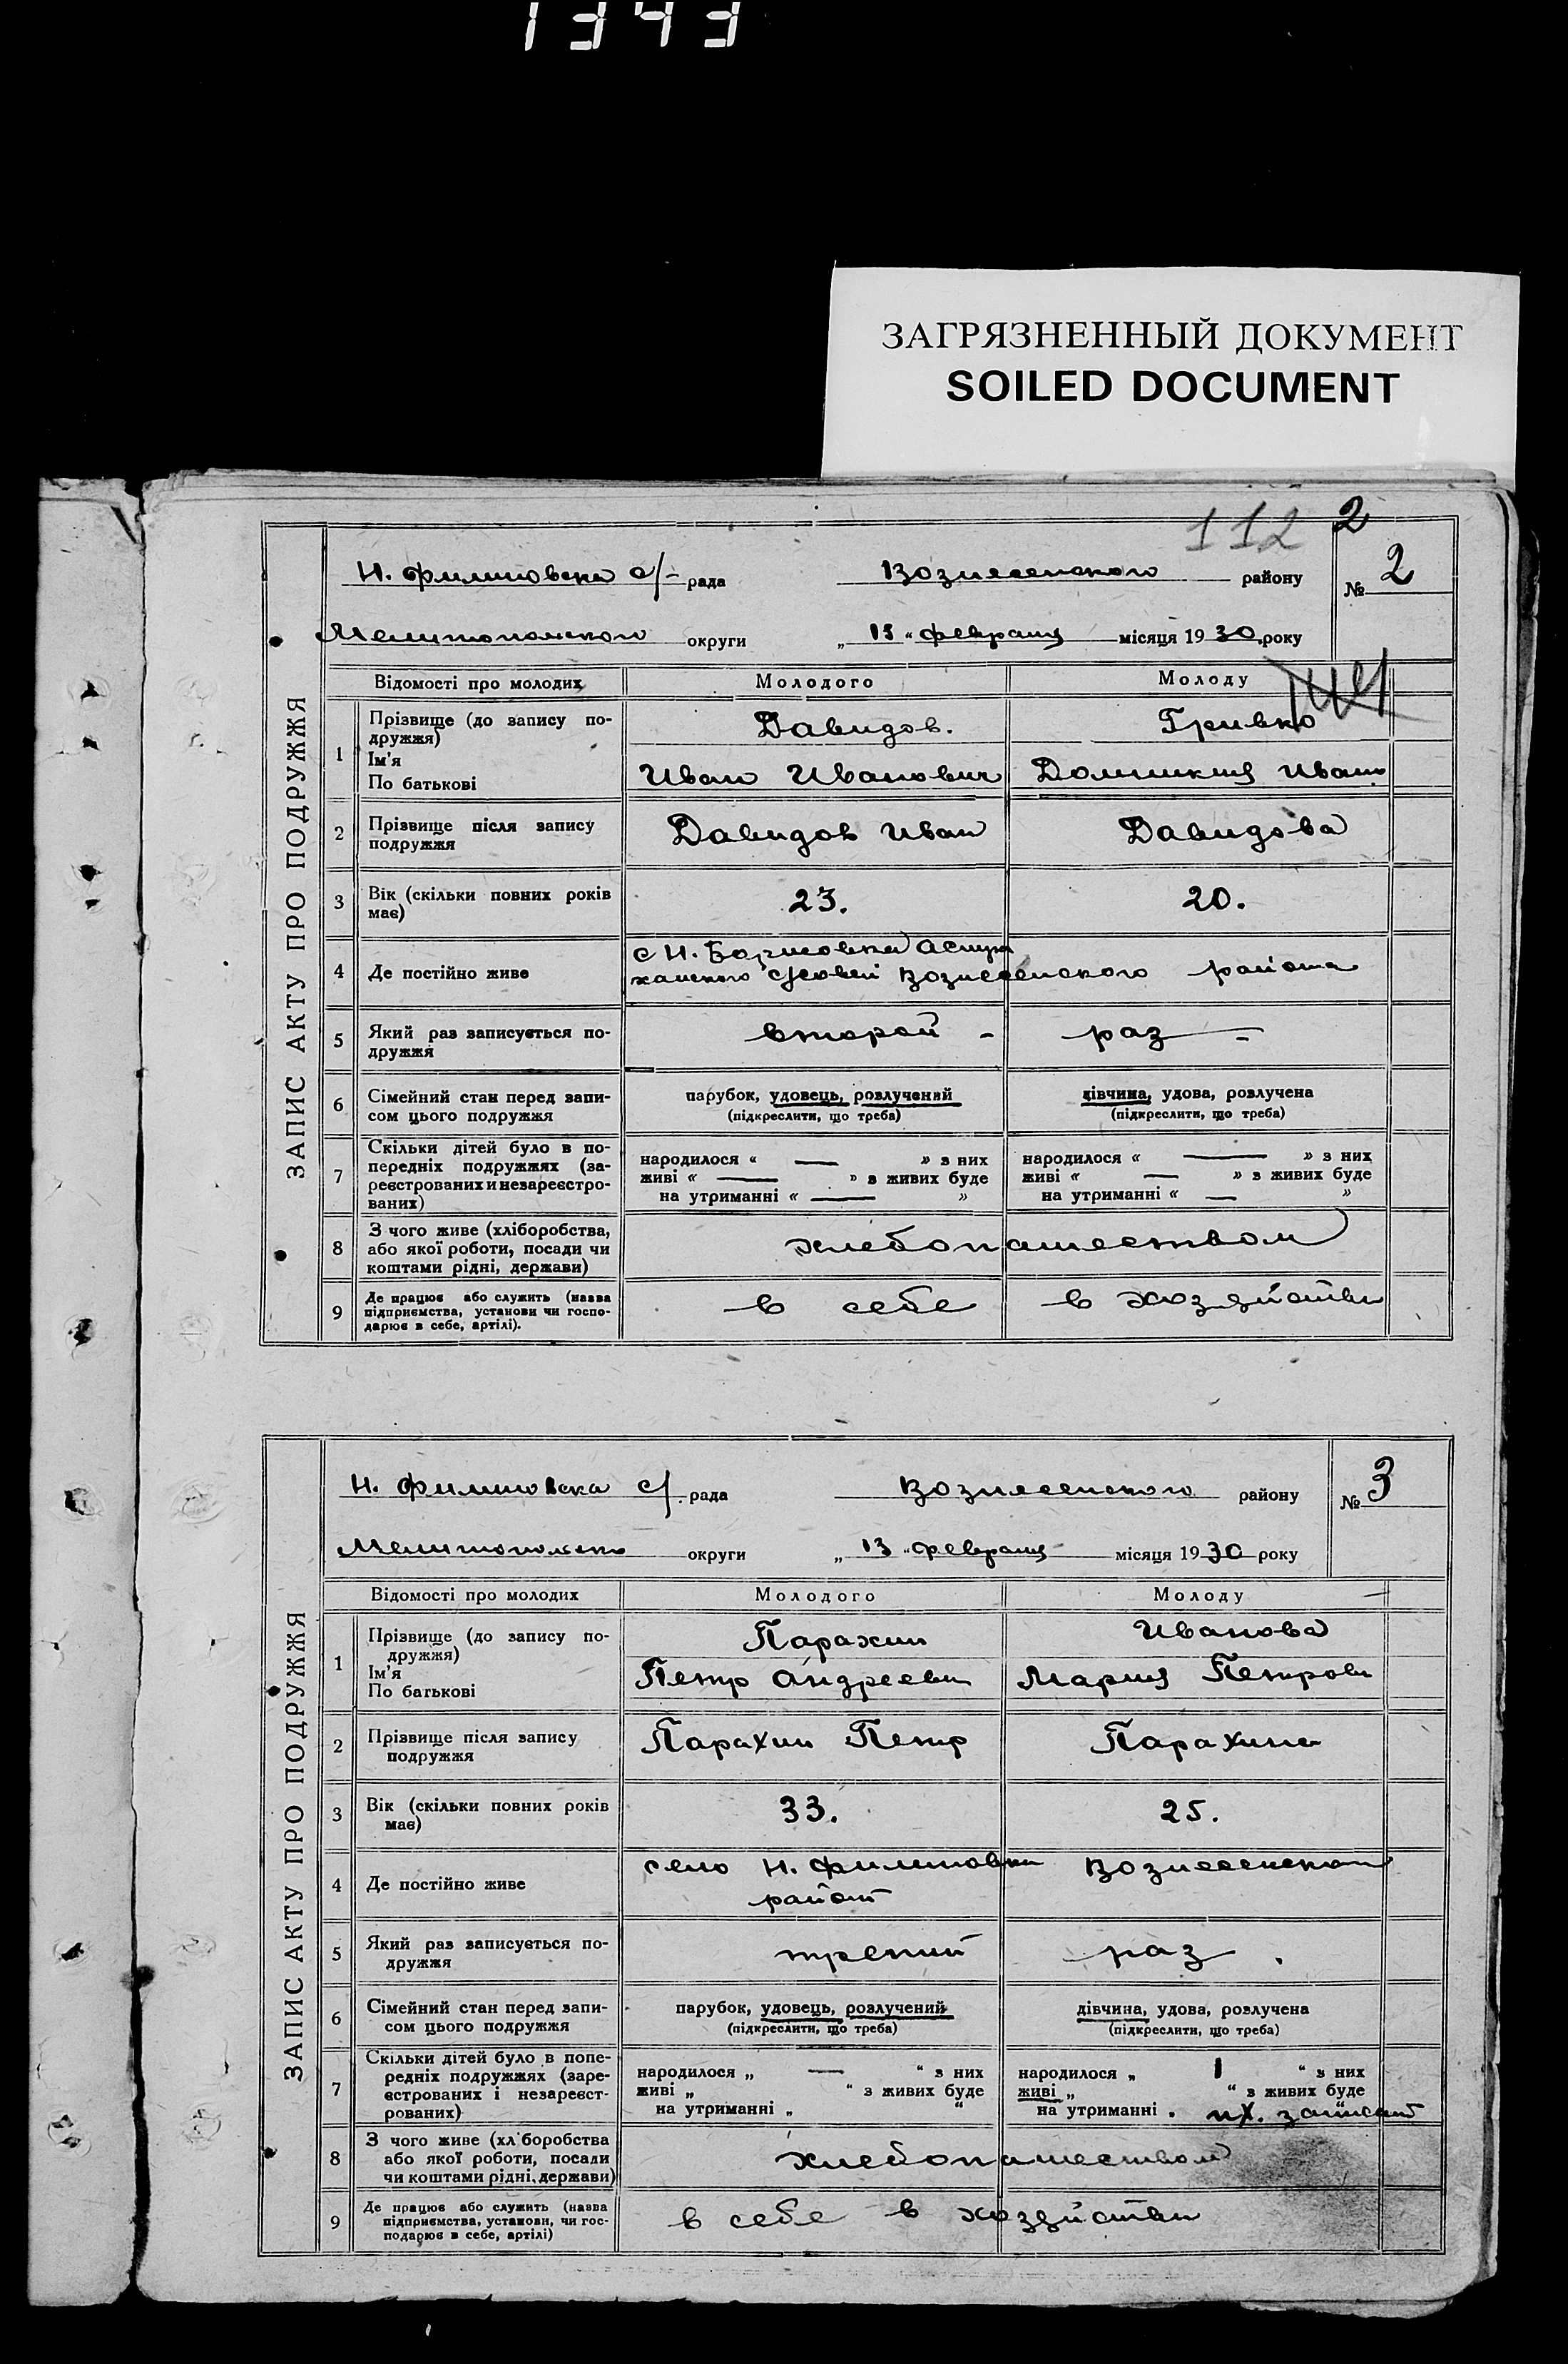 1343
ЗАГРЯЗНЕННЫЙ ДОКУМЕНТ
SOILED DOCUMENT
112 2
ЗАПИС АКТУ ПРО ПОДРУЖЖЯ
Н. Филиповска с/- рада Вознесенского району № 2
Мелитопольского округи „ 13 “ февраля місяця 1930 року
Відомості про молодих Молодого Молоду
1 Прізвище (до запису подружжя) Давидов. Гривко
Ім'я
По батькові Иван Иванович Домникия Иван
2 Прізвище після запису Давидов Иван Давидова
подружжя
3 Вік (скільки повних років 23. 20.
має)
с Н. Борисовка Астра
4 Де постійно живе ханского Вознесенского района
5 Який раз записується по- второй - раз -
дружжя
6 Сімейний стан перед запи- парубок, удовець, розлучений дівчина, удова, розлучена
сом цього подружжя (підкреслити, що треба) (підкреслити, що треба)
7 Скільки дітей було в по-
передніх подружжях (за- народилося « — » з них народилося « — » з них
реєстрованих и незареєстро- живі « — » з живих буде живі « — » з живих буде
ваних) на утриманні « — » на утриманні « — »
8 З чого живе (хліборобства,
або якої роботи, посади чи хлебопашеством
коштами рідні, держави)
9 Де працює або служить (назва
підприємства, установи чи госпо- в себе в хозяйстви
дарює в себе, артілі).
ЗАПИС АКТУ ПРО ПОДРУЖЖЯ
Н. Филиповска с/. рада Вознесенского району № 3
Мелитопольско округи „ 13 “ февраля місяця 1930 року
Відомості про молодих Молодого Молоду
1 Прізвище (до запису по- Парахин Иванова
дружжя)
Ім'я Петр Андреевич Мария Петровн
По батькові
2 Прізвище після запису Парахин Петр Парахина
подружжя
3 Вік (скільки повних років 33. 25.
має)
село Н. Филиповки Вознесенског
4 Де постійно живе район
5 Який раз записується по- третий раз .
дружжя
6 Сімейний стан перед запи- парубок, удовець, розлучений дівчина, удова, розлучена
сом цього подружжя (підкреслити, що треба) (підкреслити, що треба)
7 Скільки дітей було в попе-
редніх подружжях (заре- народилося „ — “ з них народилося „ 1 “ з них
єстрованих і незареєст- живі „ “ з живих буде живі „ “ з живих буде
рованих) на утриманні „ “ на утриманні „ их.
8 З чого живе (хліборобства
або якої роботи, посади хлебопашеством
чи коштами рідні, держави)
9 Де працює або служить (назва
підприємства, установи, чи гос- в себе в хозяйстви
подарює в себе, артілі)